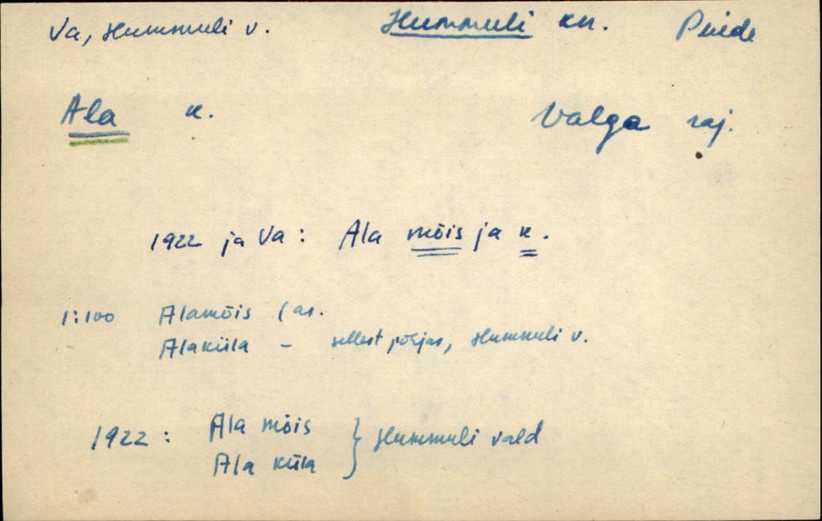 Va, Hummuli v. Hummuli kn. Puide
Ala k. Valga raj.
1922 ja Va: Ala mõis ja k.
1:100 Alamõis (as.
Alaküla – sellest põhjas, Hummuli v.
1922: Ala mõis } Hummuli vald
Ala küla